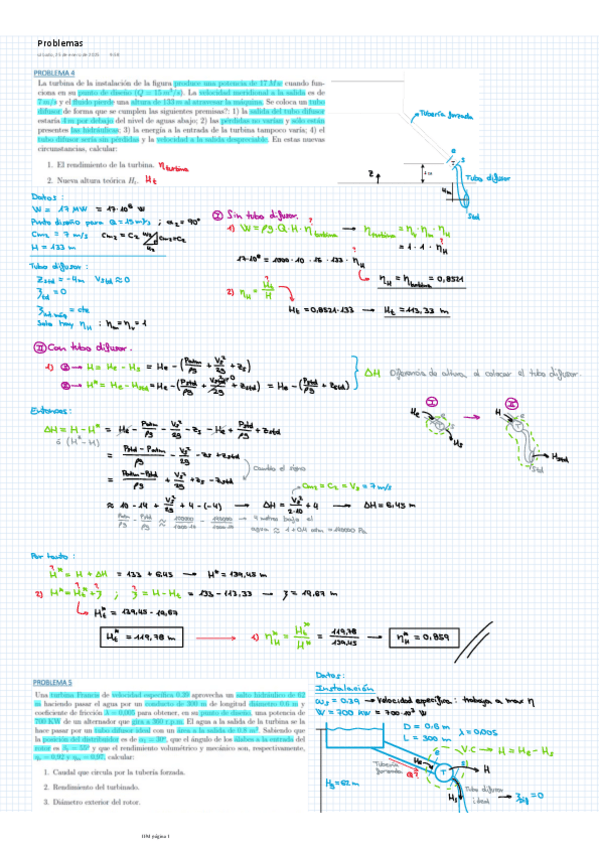 Problemas
PROBLEMA 4
La turbina de la instalación de la figura produce una potencia de 17 Mw cuando fun-
ciona en su punto de diseño (Q = 15 m³/s). La velocidad meridional a la salida es de
7 m/s y el fluido pierde una altura de 133 m al atravesar la máquina. Se coloca un tubo
difusor de forma que se cumplen las siguientes premisas": 1) la salida del tubo difusor
estaría 4 m por debajo del nivel de aguas abajo; 2) las pérdidas no varían y sólo están
presentes las hidráulicas; 3) la energía a la entrada de la turbina tampoco varía; 4) el
tubo difusor sería sin pérdidas y la velocidad a la salida despreciable. En estas nuevas
circunstancias, calcular:
1. El rendimiento de la turbina. η turbina
2. Nueva altura teórica Ht. Ht
Tubería forzada
e
s
4 m
Tubo difusor
z
4m
Std
Datos:
W = 17 MW = 17·10⁶ W
Punto diseño para Q = 15 m³/s ; α₂ = 90°
Cm₂ = 7 m/s Cm₂ = C₂
H = 133 m
Tubo difusor:
Zstd = -4m Vstd ≈ 0
ξtd = 0
= cte
Solo hay ηH ; ηm = ηv = 1
I Sin tubo difusor.
1) W = ρg·Q·H·η turbina → η turbina = ηv·ηm·ηH
= 1·1·ηH
17·10⁶ = 1000·10·15·133·ηH
ηH = η turbina = 0,8521
2) ηH = Ht/H
Ht = 0,8521·133 → Ht = 113,33 m
II Con tubo difusor.
1) I → H = He - Hs = He - (Patm/ρg + Vs²/2g + Zs)
II → H* = He - Hstd = He - (Pstd/ρg + Vstd²/2g + Zstd) = He - (Pstd/ρg + Zstd)
ΔH Diferencia de altura al colocar el tubo difusor.
Entonces:
ΔH = H - H* = He - Patm/ρg - Vs²/2g - Zs - He + Pstd/ρg + Zstd
ó (H* - H)
= Pstd - Patm/ρg - Vs²/2g - Zs + Zstd
Cambio el signo
= Patm - Pstd/ρg + Vs²/2g + Zs - Zstd
Cm₂ = C₂ = Vs = 7 m/s
≈ 10 - 14 + Vs²/2g + 4 - (-4) → ΔH = Vs²/2·10 + 4 → ΔH = 6,45 m
4 metros bajo el
I
II
He
Hs
H
Hstd
Std
Por tanto:
H* = H + ΔH = 133 + 6,45 → H* = 139,45 m
2) H* = Ht* + ξ ; ξ = H - Ht = 133 - 113,33 → ξ = 19,67 m
Ht* = 139,45 - 19,67
Ht* = 119,78 m
1) ηH* = Ht*/H* = 119,78/139,45 → ηH* = 0,859
PROBLEMA 5
Una turbina Francis de velocidad específica 0.39 aprovecha un salto hidráulico de 62
m haciendo pasar el agua por un conducto de 300 m de longitud diámetro 0.6 m y
coeficiente de fricción λ = 0.005 para obtener, en su punto de diseño, una potencia de
700 KW de un alternador que gira a 360 r.p.m. El agua a la salida de la turbina se la
hace pasar por un tubo difusor ideal con un área a la salida de 0.8 m². Sabiendo que
la posición del distribuidor es de α₁ = 30°, que el ángulo de los álabes a la entrada del
rotor es β₁ = 55° y que el rendimiento volumétrico y mecánico son, respectivamente,
ηv = 0.92 y ηm = 0.97, calcular:
1. Caudal que circula por la tubería forzada.
2. Rendimiento del turbinado.
3. Diámetro exterior del rotor.
Datos:
Instalación
ωs = 0.39 → Velocidad específica: trabaja a max η
W = 700 kW = 700·10³ W
D = 0.6 m
L = 300 m
λ = 0.005
V.C → H = He - Hs
Tubería
forzada
Q?
He
T
H
Hs
Hg = 62 m
Tubo difusor
ideal → ξtd = 0
HM página 1